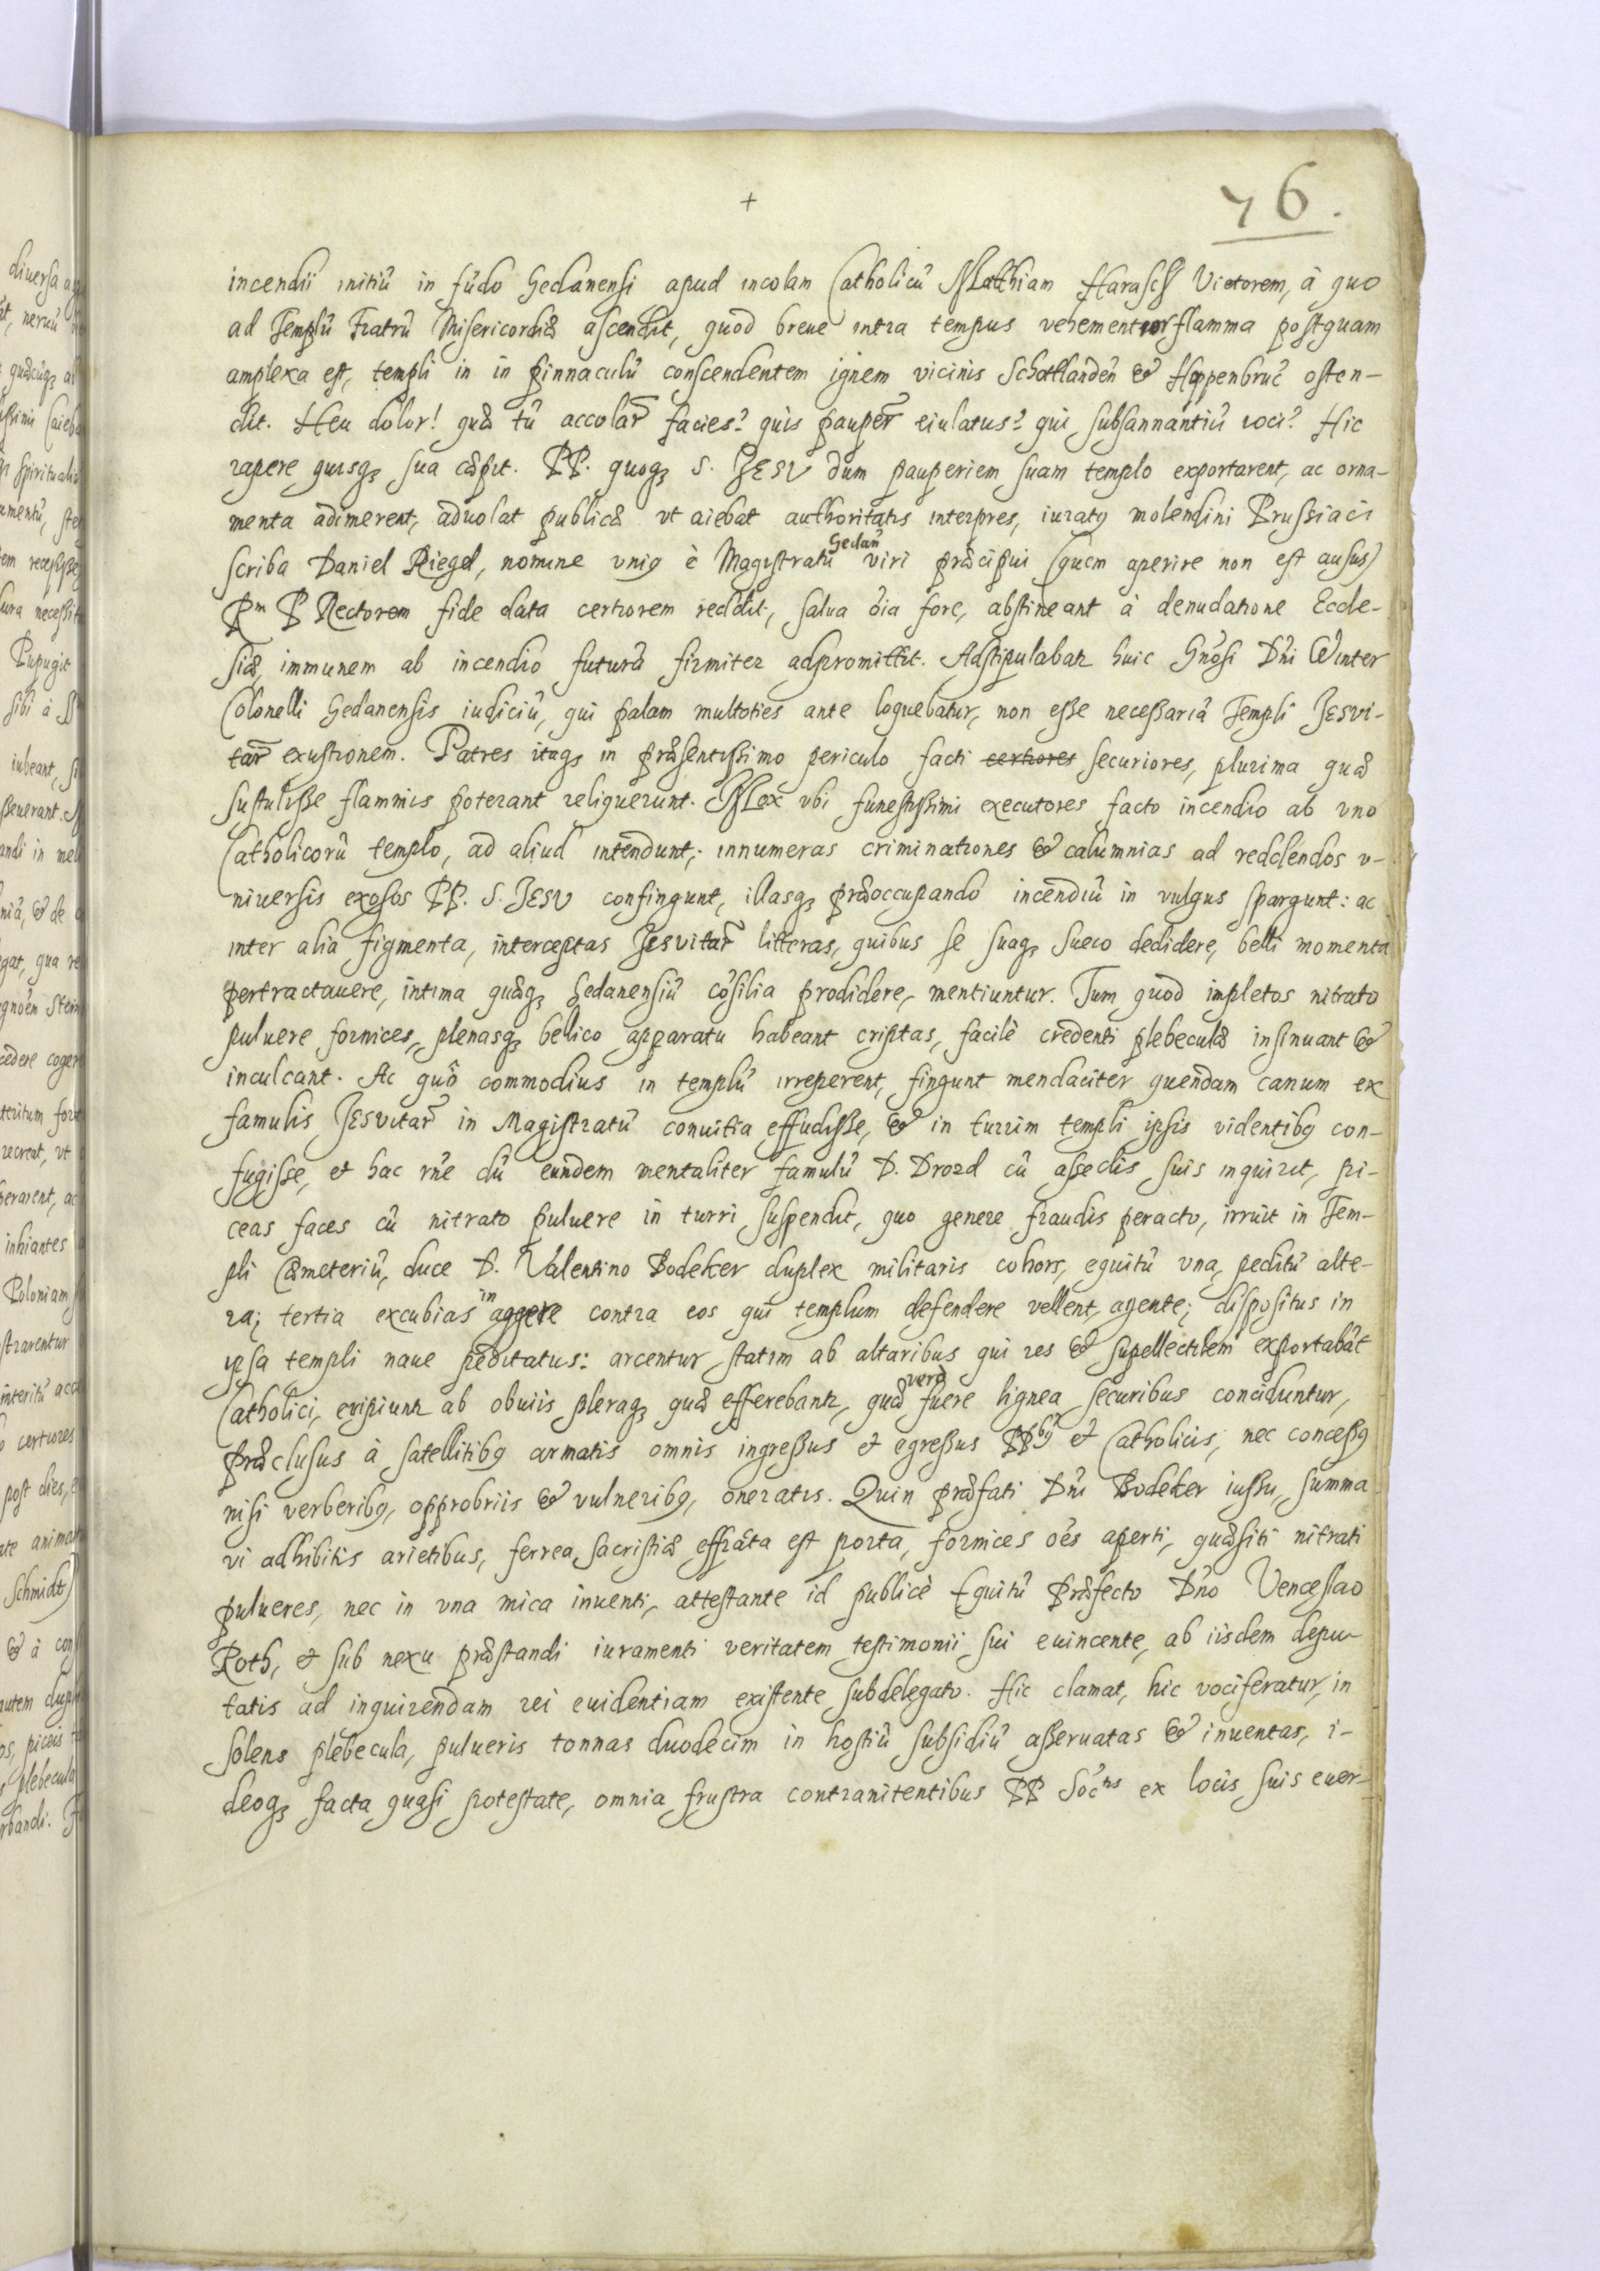 +
76.
incendii initiũ in fũdo Gedanensi apud incolam Catholicũ Mathiam Harasch Vietorem, à quo
ad Templũ Fratrũ Misericordiæ ascendit, quod breue intra tempus vehementior flamma postquam
amplexa est, templi in in pinnaculũ conscendentem ignem vicinis Schottlanden & Hoppenbruc osten-
dit. Heu dolor! quæ tũ accolar facies? quis pauper eiulatus? qui subsannantiũ voci? Hic
rapere quisq sua cæpit. PP. quoq S. JESV dum pauperiem suam templo exportarent, ac orna-
menta adimerent, aduolat publicæ vt aiebat authoritatis interpres, iuratq molendini Prussiaci
scriba Daniel Riegel, nomine vniq è Magistratũ Gedan viri præcipui (quem aperire non est ausus)
Rm P Rectorem fide data certiorem reddit, salua õia fore, abstineant à denudatione Eccle-
siæ, immunem ab incendio futurã firmiter adpromittit. Adstipulabatr huic Gnosi Dni Winter
Colonelli Gedanensis iudiciũ, qui palam multoties ante loquebatur, non esse necessariã Templi JESVI-
tar exustionem. Patres itaq in præsentissimo periculo facti certiores securiores, plurima quæ
sustulisse flammis poterant reliquerunt. Mox vbi funestissimi executores facto incendio ab vno
Catholicorũ templo, ad aliud intendunt, innumeras criminationes & calumnias ad reddendos v-
niuersis exosos PP. S. JESV confingunt, illasq præoccupando incendiũ in vulgus spargunt: ac
inter alia figmenta, interceptas Jesvitar litteras, quibus se suaq Sueco dedidere, belli momenta
pertractauere, intima quæq Gedanensiũ cõsilia prodidere, mentiuntur. Tum quod impletos nitrato
puluere fornices, plenasq bellico apparatu habeant criptas, facilè credenti plebeculæ insinuant &
inculcant. Ac quô commodius in templũ irreperent, fingunt mendaciter quendam canum ex
famulis JESVITAR in Magistratũ conuitia effudisse, & in turrim templi ipsis videntibq con-
fugisse, et hac rne dũ eundem mentaliter famulũ D. Drozd cũ asseclis suis inquirit, pi-
ceas faces cũ nitrato puluere in turri suspendit, quo genere fraudis peracto, irruit in Tem-
pli Cæmeteriũ, duce D. Valentino Bodeker duplex militaris cohors, equitũ vna, peditũ alte-
ra; tertia excubias in aggere contra eos qui templum defendere vellent, agente; dispositus in
ipsa templi naue peditatus: arcentur statim ab altaribus qui res & supellectilem exportabãt
Catholici, eripiuntr ab obuiis pleraq quæ efferebantr, quæ verò fuere lignea securibus conciduntur,
præclusus à satellitibq armatis omnis ingressus et egressus PPbq et Catholicis, nec concessq
nisi verberibq, opprobriis & vulneribq, oneratis. Quin præfati Dni Bodeker iussu, summa
vi adhibitis arietibus, ferrea sacristiæ effrãta est porta, fornices oẽs aperti, quæsiti nitrati
pulueres, nec in vna mica inuenti, attestante id publicè Equitũ Præfecto Dno Venceslao
Roth, et sub nexu præstandi iuramenti veritatem testimonii sui euincente, ab iisdem depu-
tatis ad inquirendam rei euidentiam existente subdelegato. Hic clamat, hic vociferatur, in
solens plebecula, pulueris tonnas duodecim in hostiũ subsidiũ asseruatas & inuentas, i-
deoq facta quasi potestate, omnia frustra contranitentibus PP Soctis ex locis suis euer-